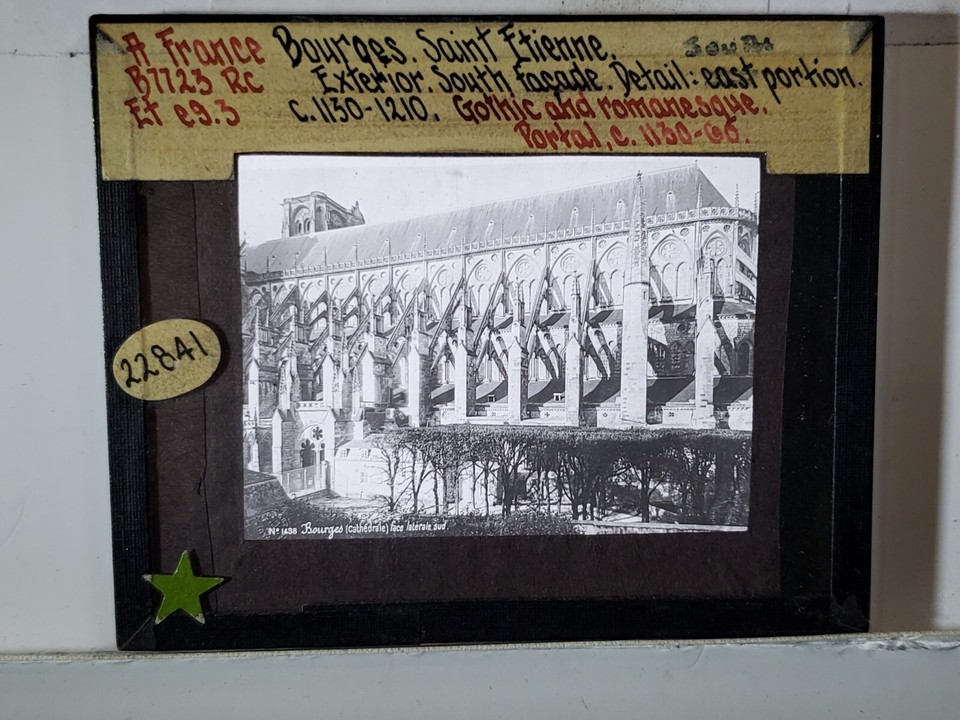 A France Bourges. Saint Etienne. South
B7723 Rc Exterior. South façade. Detail: east portion.
Et e9.3 c. 1130-1210. Gothic and romanesque.
Portal, c. 1130-60.
22841
Nº 1498 Bourges (Cathédrale) face latérale sud